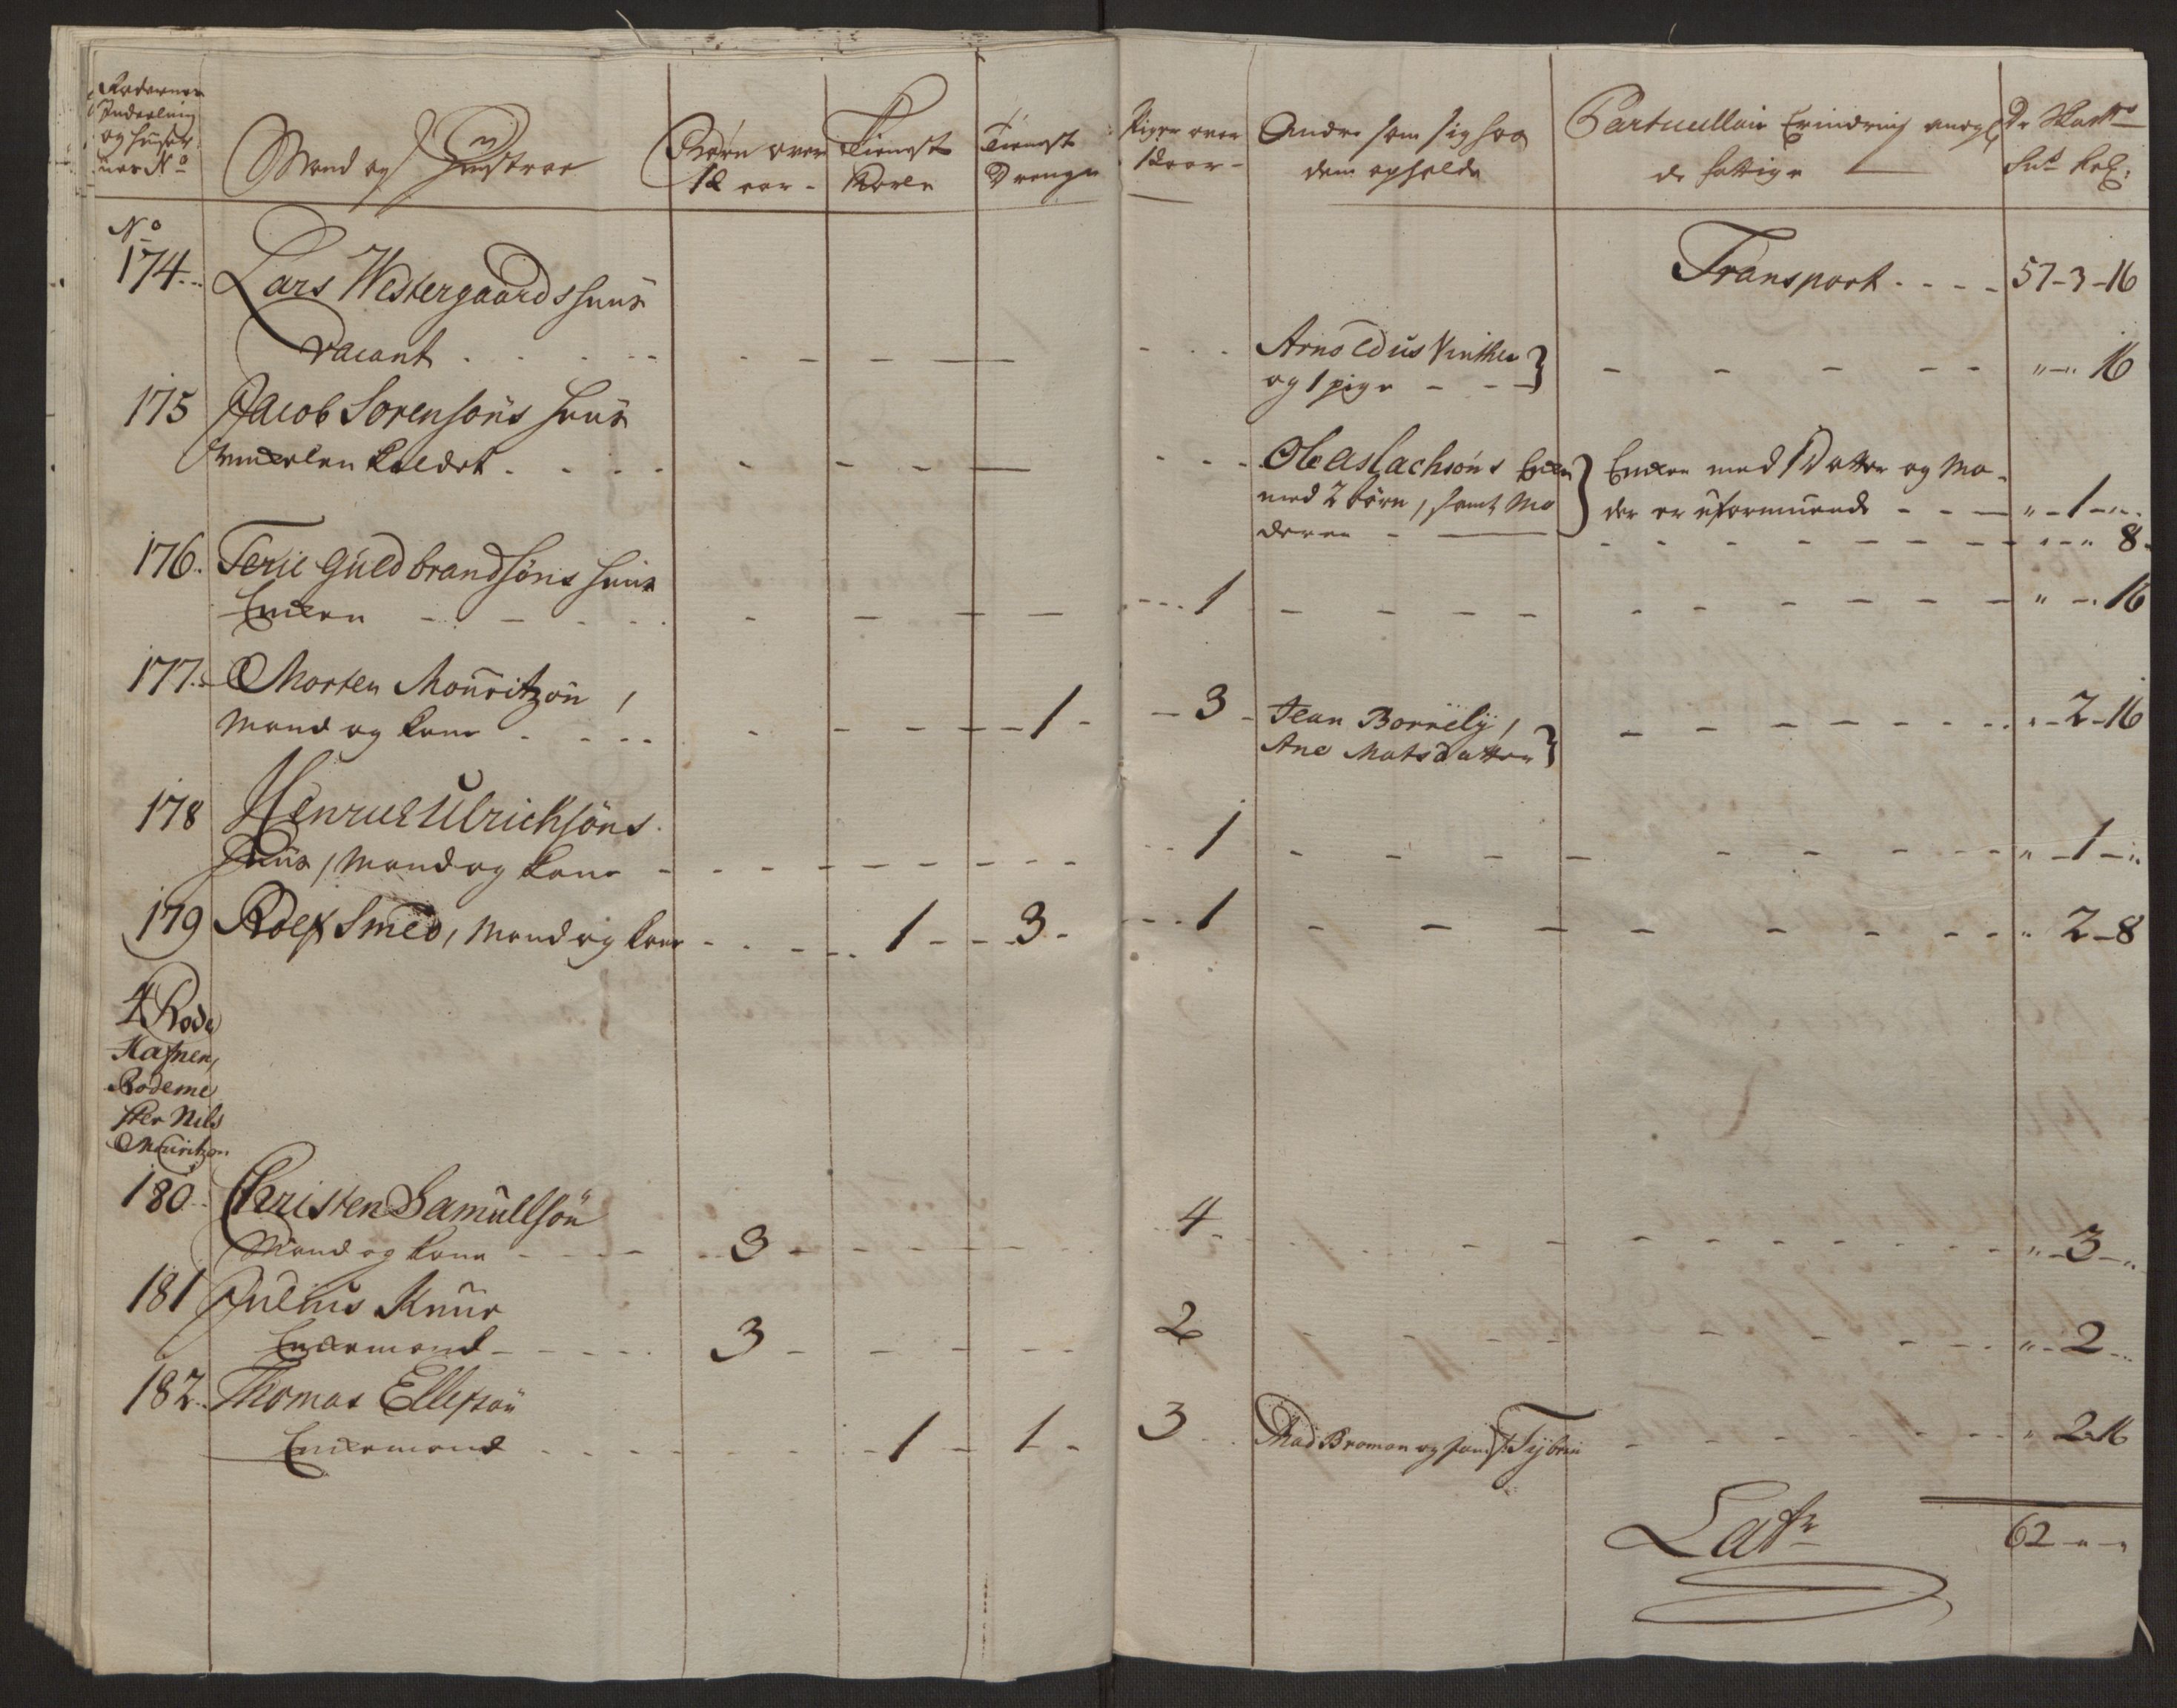 Rodernes
Inddeeling
og Huuse
nes No
Mand og Hustroe
Børn over
12 aar -
Tieneste
Karle
Tieneste
Drenge
Piger over
12 aar -
Andre som sig hos
dem opholde
Particullair Erindring
de fattige
No
174 Lars Westergaards huus
Transport - - - - 57-3-16
vacant
Arnoldus Vinther
og 1 pige - - - 16
175 Jacob Sørensøns huus
kaldet
Ole Aslachsøns Enke
med 2 børn, samt Mo
deren
Enken med 1 Datter og Mo-
der er uformuende - - - 1 -
8
176. Terje Guldbrandsøns huus
Enken - - - 1 - - - 16
177. Morten Mouritzøn,
Mand og kone - - - 1 - 3
Jean Borrely,
Ane Matsdatter
- 2-16
178 Henrick Ulrichsøns
huus, Mand og kone - - - 1 - - - 1 -
179 Rolf Smed, Mand og kone - - - 1 - 3 - 1 - - - 2-8
4 Rode
Hafnen,
Rodeme
ster Nils
Mouritzøn
180 Christen Samuelsøn
Mand og kone - - - 3 - - - 4 - - - 3 -
181 Julius Knur
Enkemand - - - 3 - - - 2 - - - 2 -
182. Thomas Ellefsøn
Enkemand - - - 1 - 1 - 3
Mad Broman og
- 2-16
Latr 62 - -